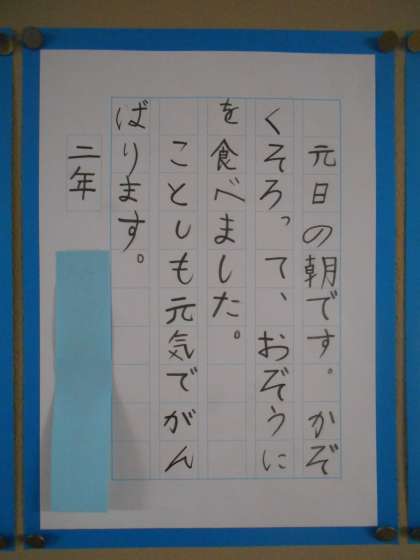 元日の朝です。かぞ
くそろって、おぞうに
を食べました。
ことしも元気でがん
ばります。
二年